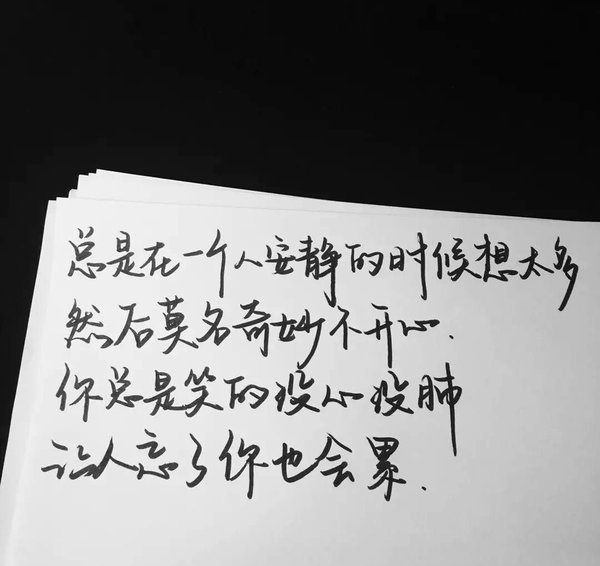 总是在一个人安静的时候想太多
然后莫名奇妙不开心.
你总是笑的没心没肺
让人忘了你也会累.